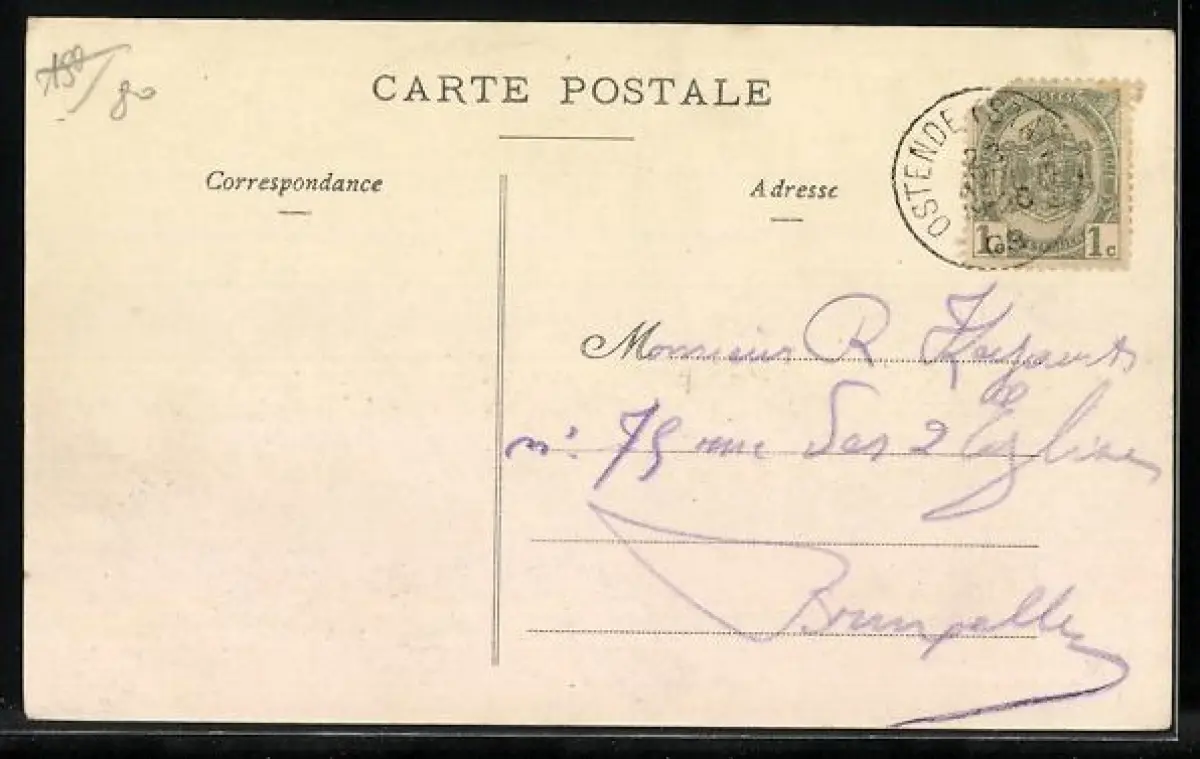 CARTE POSTALE
Correspondance
Adresse
OSTENDE
1c 1c
Monsieur R.
n: 75 rue des 2 Églises
Bruxelles